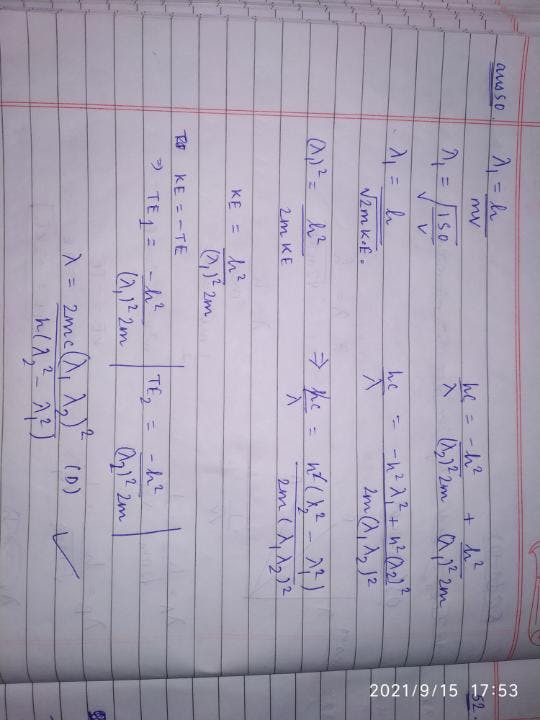 ans 50.
λ₁ = h/mv
λ₁ = √(150/V)
λ₁ = h/√(2m K.E.)
(λ₁)² = h²/2m KE
KE = h²/(λ₁)² 2m
KE = -TE
⇒ TE₁ = -h²/(λ₁)² 2m | TE₂ = -h²/(λ₂)² 2m
hc/λ = -h²/(λ₂)² 2m + h²/(λ₁)² 2m
hc/λ = -h²λ₁² + h²(λ₂)²/2m(λ₁λ₂)²
⇒ hc/λ = h²(λ₂² - λ₁²)/2m(λ₁λ₂)²
λ = 2mc(λ₁λ₂)²/h(λ₂² - λ₁²) (D)
52
2021/9/15 17:53